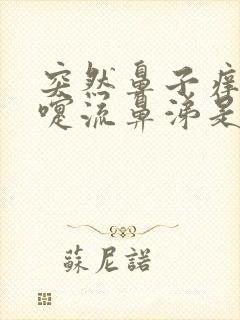 突然鼻子痒
嚏流鼻涕是
蘇尼諾